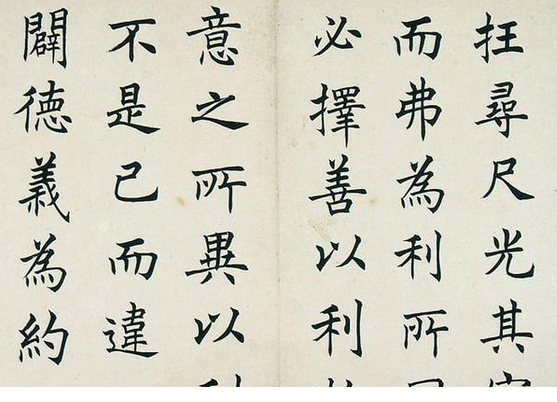 枉尋尺光其
而弗為利所
必擇善以利
意之所異以
不是已而違
闢德義為約